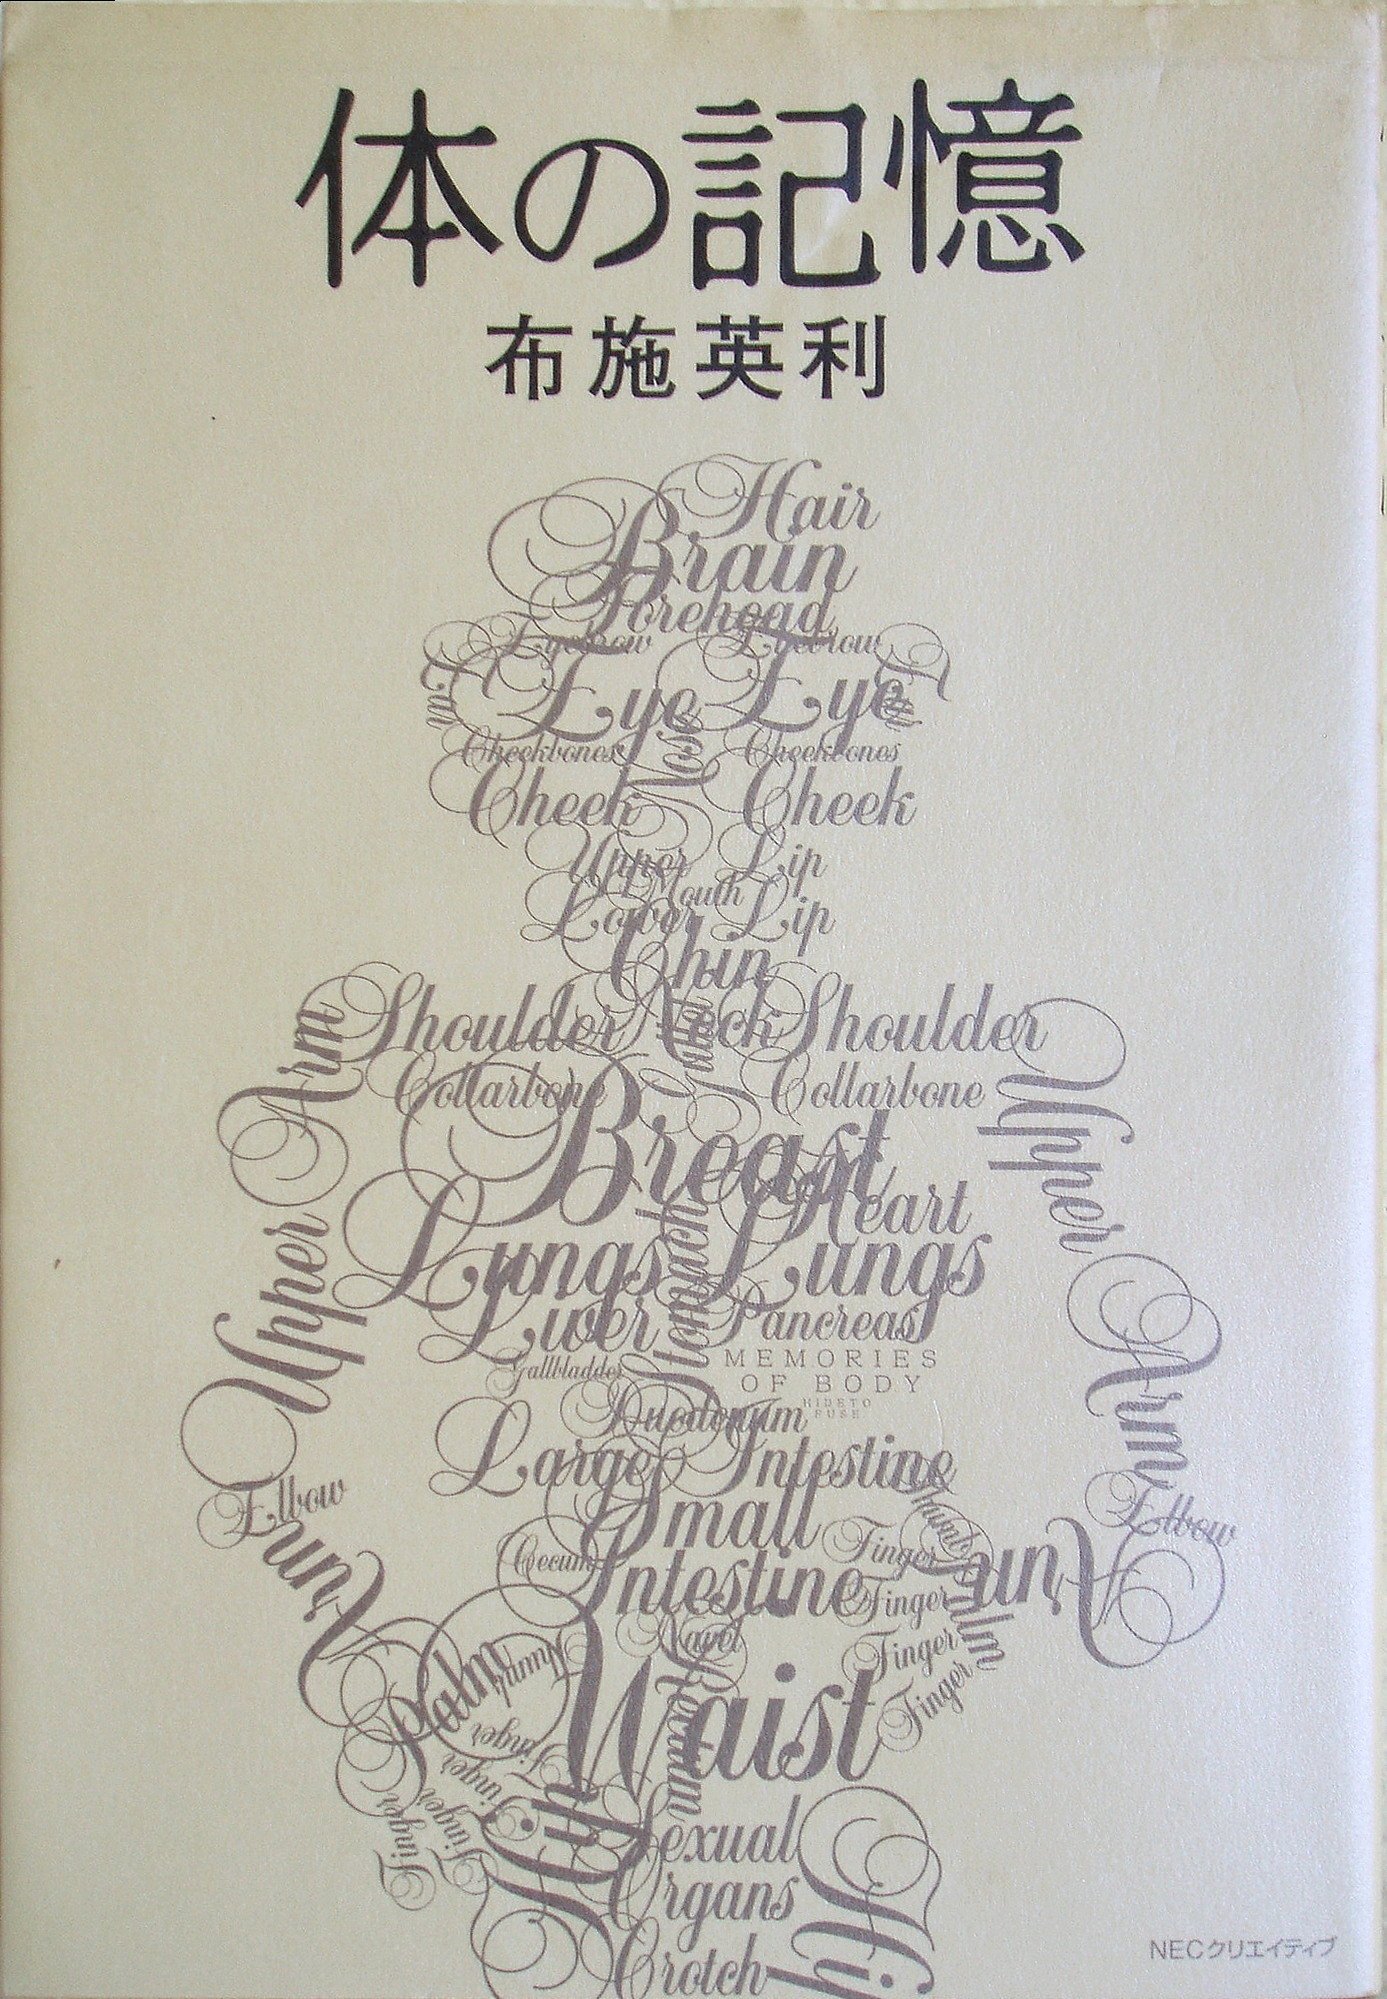 体の記憶
布施英利
Hair
Brain
Forehead
Eyebrow Eyebrow
Ear Eye Eye Ear
Nose
Cheekbones Cheekbones
Cheek Cheek
Upper Lip
Mouth
Lower Lip
Chin
Shoulder Neck Shoulder
Collarbone Collarbone
Upper Arm Upper Arm
Breast
Heart
Lungs Lungs
Stomach
Liver Pancreas
Gallbladder
MEMORIES
OF BODY
HIDETO
FUSE
Duodenum
Large Intestine
Elbow Elbow
Small
Intestine
Cecum
Arm Arm
Thumb
Finger
Finger
Finger
Finger
Palm
Navel
Palm
Thumb
Finger
Finger
Finger
Finger
Waist
Rectum
Hip Hip
Sexual
Organs
Crotch
NECクリエイティブ